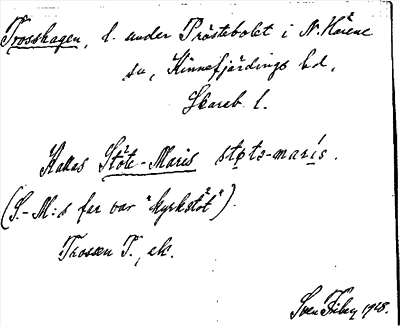 Trosshagen, l. under Prästebolet i N. Härene
sn, Kinnefjärdings hd,
Skarab. l.
Kallas Stöte-Maris støtə-maris.
(S.-M:s far var "kyrkstöt").
Trossen T., ek.
Sven Friberg 1928.